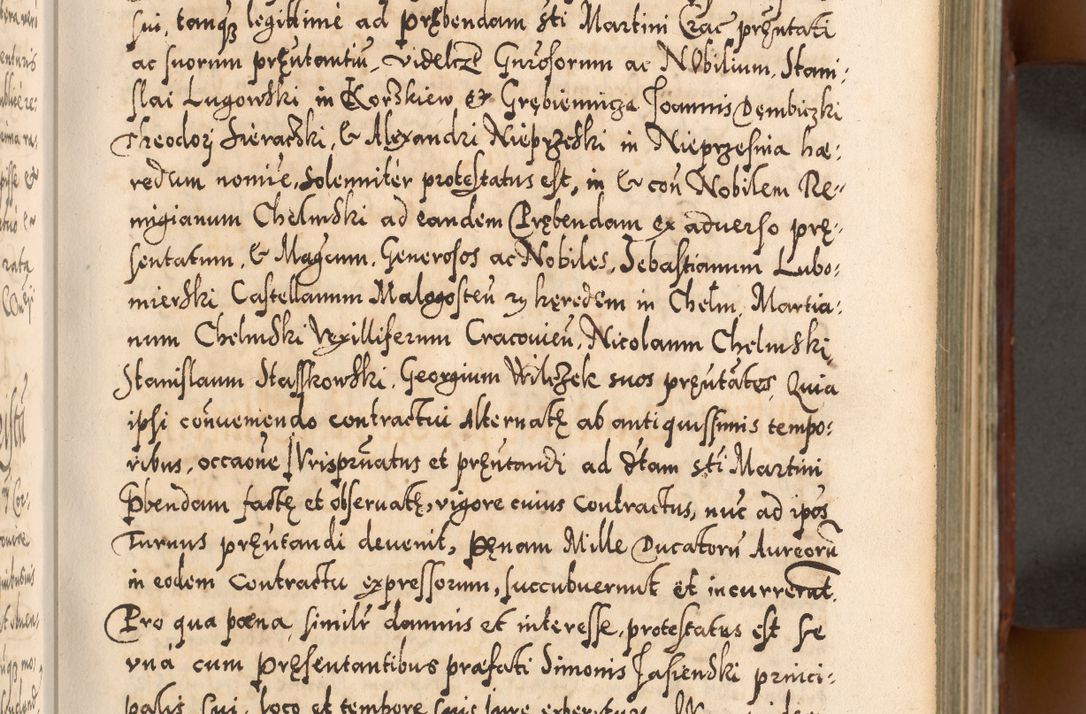 sui, tanqȝ legittime ad prębendam S̃ti Martini Crac pręntati
ac suorum pręutantiũ, videlczẽ Gnrosorum ac Nobilium, Stani-
slai Lugowski in Korzkiew et Grębiennicza Joannis Dembiczki
Theodorj Sieradzki, & Alexandri Nieprzeski in Nieprzesnia hæ-
redum nomĩe, solenniter protestatus est, in & coñ Nobilem Re-
migianum Chelmski ad eandem Pręebendam ex aduerso prę-
sentatum, & Magcum, Generosos ac Nobiles, Sebastianum Lubo-
mierski Castellanum Malogosteñ ꝛ hęredem in Chełm, Martia-
num Chelmski Vexilliferum Cracouieñ, Nicolaum Chelmski,
Stanislaum Stasskowski, Georgium Wilczek suos pręntãtes, Quia
ipsi coñueniendo contractui Alternatę ab antiquissimis tempo-
ribus, occaõne Jurisprũatus et pręntandi ad d̃tam S̃ti Martini
Pbendam factę et obseruatę, vigore cuius Contractus, nũc ad ipõs
Turnus pręntandi deuenit, pęnam Mille Ducatorũ Aureorũ
in eodem Contractu expressorum, succubuerunt et incurrerunt.
Pro qua pœna, similr̃ damnis et interesse, protestatus est se
vná cum pręsentantibus præfati Simonis Jasienski princi-
palis sui, loco et tempore